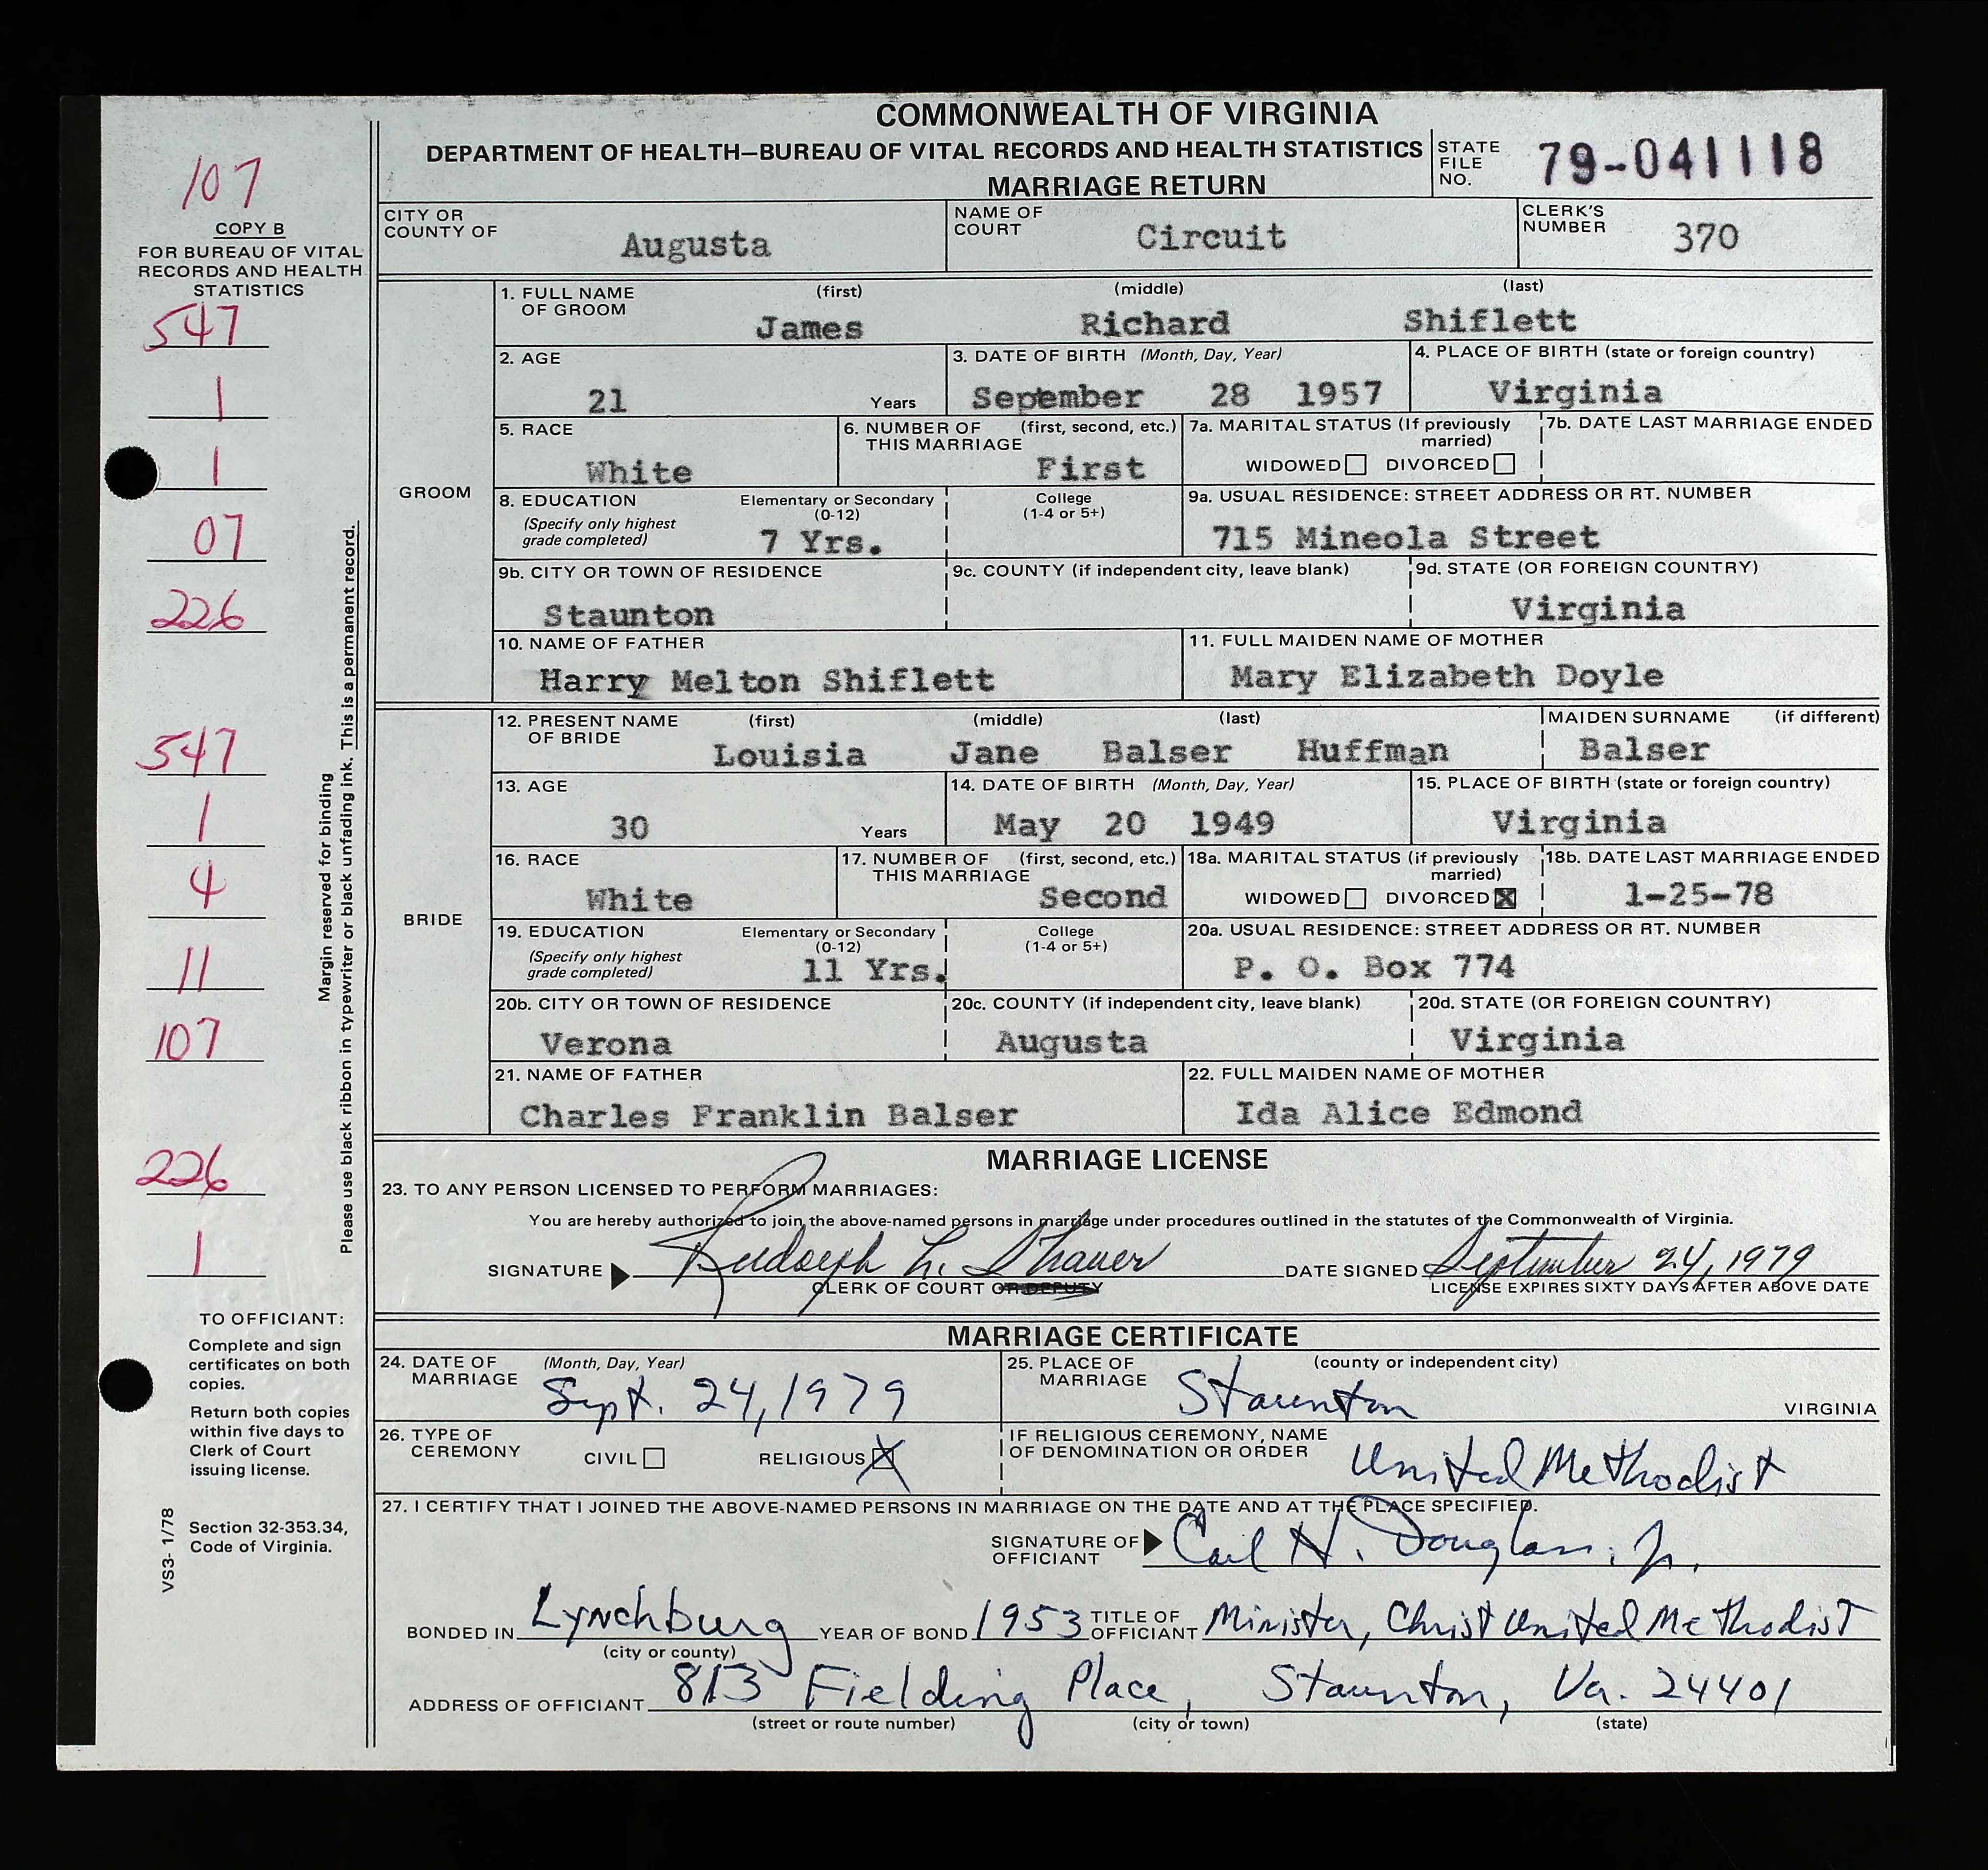 COMMONWEALTH OF VIRGINIA
DEPARTMENT OF HEALTH—BUREAU OF VITAL RECORDS AND HEALTH STATISTICS
MARRIAGE RETURN
STATE FILE NO. 79-041118
107
COPY B
FOR BUREAU OF VITAL
RECORDS AND HEALTH
STATISTICS
547
1
1
07
226
547
1
4
11
107
226
1
Margin reserved for binding
Please use black ribbon in typewriter or black unfading ink. This is a permanent record.
TO OFFICIANT:
Complete and sign
certificates on both
copies.
Return both copies
within five days to
Clerk of Court
issuing license.
Section 32-353.34,
Code of Virginia.
VS3- 1/78
CITY OR COUNTY OF Augusta
NAME OF COURT Circuit
CLERK'S NUMBER 370
GROOM
1. FULL NAME OF GROOM (first) (middle) (last)
James Richard Shiflett
2. AGE 21 Years
3. DATE OF BIRTH (Month, Day, Year)
Sepember 28 1957
4. PLACE OF BIRTH (state or foreign country)
Virginia
5. RACE
White
6. NUMBER OF THIS MARRIAGE (first, second, etc.)
First
7a. MARITAL STATUS (If previously married)
WIDOWED DIVORCED
7b. DATE LAST MARRIAGE ENDED
8. EDUCATION (Specify only highest grade completed)
Elementary or Secondary (0-12)
7 Yrs.
College (1-4 or 5+)
9a. USUAL RESIDENCE: STREET ADDRESS OR RT. NUMBER
715 Mineola Street
9b. CITY OR TOWN OF RESIDENCE
Staunton
9c. COUNTY (if independent city, leave blank)
9d. STATE (OR FOREIGN COUNTRY)
Virginia
10. NAME OF FATHER
Harry Melton Shiflett
11. FULL MAIDEN NAME OF MOTHER
Mary Elizabeth Doyle
BRIDE
12. PRESENT NAME OF BRIDE (first) (middle) (last)
Louisia Jane Balser Huffman
MAIDEN SURNAME (if different)
Balser
13. AGE 30 Years
14. DATE OF BIRTH (Month, Day, Year)
May 20 1949
15. PLACE OF BIRTH (state or foreign country)
Virginia
16. RACE
White
17. NUMBER OF THIS MARRIAGE (first, second, etc.)
Second
18a. MARITAL STATUS (if previously married)
WIDOWED DIVORCED X
18b. DATE LAST MARRIAGE ENDED
1-25-78
19. EDUCATION (Specify only highest grade completed)
Elementary or Secondary (0-12)
11 Yrs.
College (1-4 or 5+)
20a. USUAL RESIDENCE: STREET ADDRESS OR RT. NUMBER
P. O. Box 774
20b. CITY OR TOWN OF RESIDENCE
Verona
20c. COUNTY (if independent city, leave blank)
Augusta
20d. STATE (OR FOREIGN COUNTRY)
Virginia
21. NAME OF FATHER
Charles Franklin Balser
22. FULL MAIDEN NAME OF MOTHER
Ida Alice Edmond
MARRIAGE LICENSE
23. TO ANY PERSON LICENSED TO PERFORM MARRIAGES:
You are hereby authorized to join the above-named persons in marriage under procedures outlined in the statutes of the Commonwealth of Virginia.
SIGNATURE Rudolph L. Shaver DATE SIGNED September 24, 1979
CLERK OF COURT OR DEPUTY LICENSE EXPIRES SIXTY DAYS AFTER ABOVE DATE
MARRIAGE CERTIFICATE
24. DATE OF MARRIAGE (Month, Day, Year)
Sept. 24, 1979
25. PLACE OF MARRIAGE (county or independent city)
Staunton VIRGINIA
26. TYPE OF CEREMONY CIVIL RELIGIOUS X
IF RELIGIOUS CEREMONY, NAME OF DENOMINATION OR ORDER United Methodist
27. I CERTIFY THAT I JOINED THE ABOVE-NAMED PERSONS IN MARRIAGE ON THE DATE AND AT THE PLACE SPECIFIED.
SIGNATURE OF OFFICIANT Carl H. Douglass, Jr.
BONDED IN Lynchburg YEAR OF BOND 1953 TITLE OF OFFICIANT Minister, Christ United Methodist
(city or county)
ADDRESS OF OFFICIANT 813 Fielding Place, Staunton, Va. 24401
(street or route number) (city or town) (state)